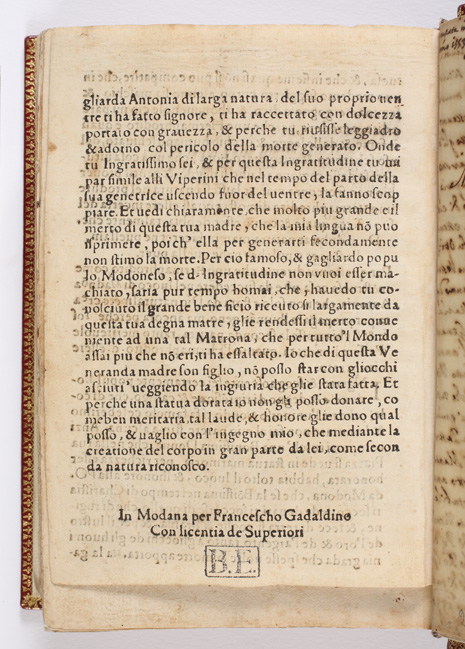 gliarda Antonia di larga natura del suo proprio uen
tre ti ha fatto signore, ti ha raccettato con dolcezza
portato con grauezza, & perche tu riusisse leggiadro
& adorno col pericolo della morte generato. Onde
tu Ingratissimo sei, & per questa Ingratitudine tu mi
par simile alli Viperini che nel tempo del parto della
sua genetrice uscendo fuor del uentre, la fanno scop
piare. Et uedi chiaramente che molto piu grande e il
merto di questa tua madre, che la mia lingua nō puo
isprimere, poi ch' ella per generarti fecondamente
non stimo la morte. Per cio famoso, & gagliardo popu
lo Modoneso, se d' Ingratitudine non vuoi esser ma-
chiato, saria pur tempo homai, che, hauēdo tu co-
nosciuto il grande beneficio riceuto si largamente da
questa tua degna matre, glie rendessi il merto conue
niente ad una tal Matrona, che per tutto'l Mondo
assai piu che nō eri, ti ha essaltato. Io che di questa Ve
neranda madre son figlio, nō posso star con gliocchi
asciuti ueggiendo la ingiuria che glie stata fatta. Et
perche una statua dorata io non gli posso donare, co
me ben meritaria tal laude, & honore glie dono qual
posso, & uaglio con l'ingegno mio, che mediante la
creatione del corpo in gran parte da lei, come secon
da natura riconosco.
In Modana per Francescho Gadaldino
Con licentia de Superiori
B.E.